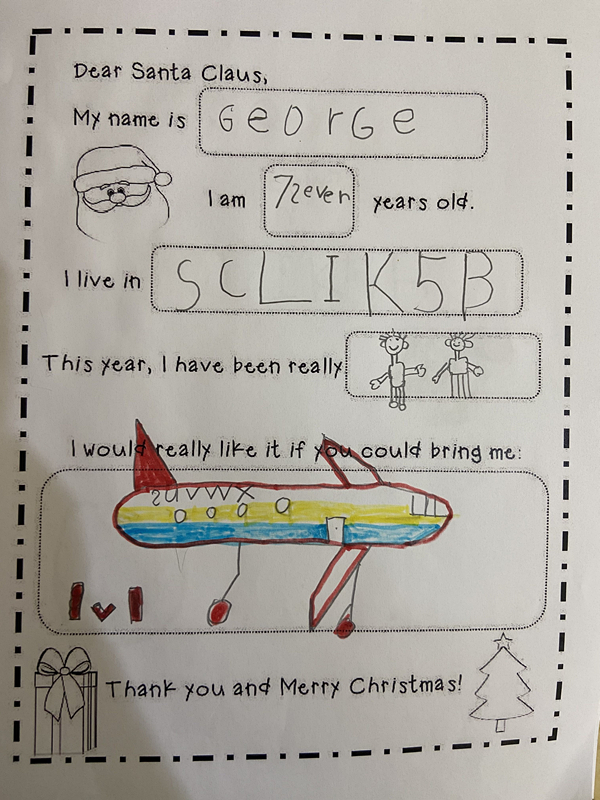 Dear Santa Claus,
My name is GeOrGe
I am 7zeven years old.
I live in SCLIK5B
This year, I have been really
I would really like it if you could bring me:
zuvwx
Thank you and Merry Christmas!